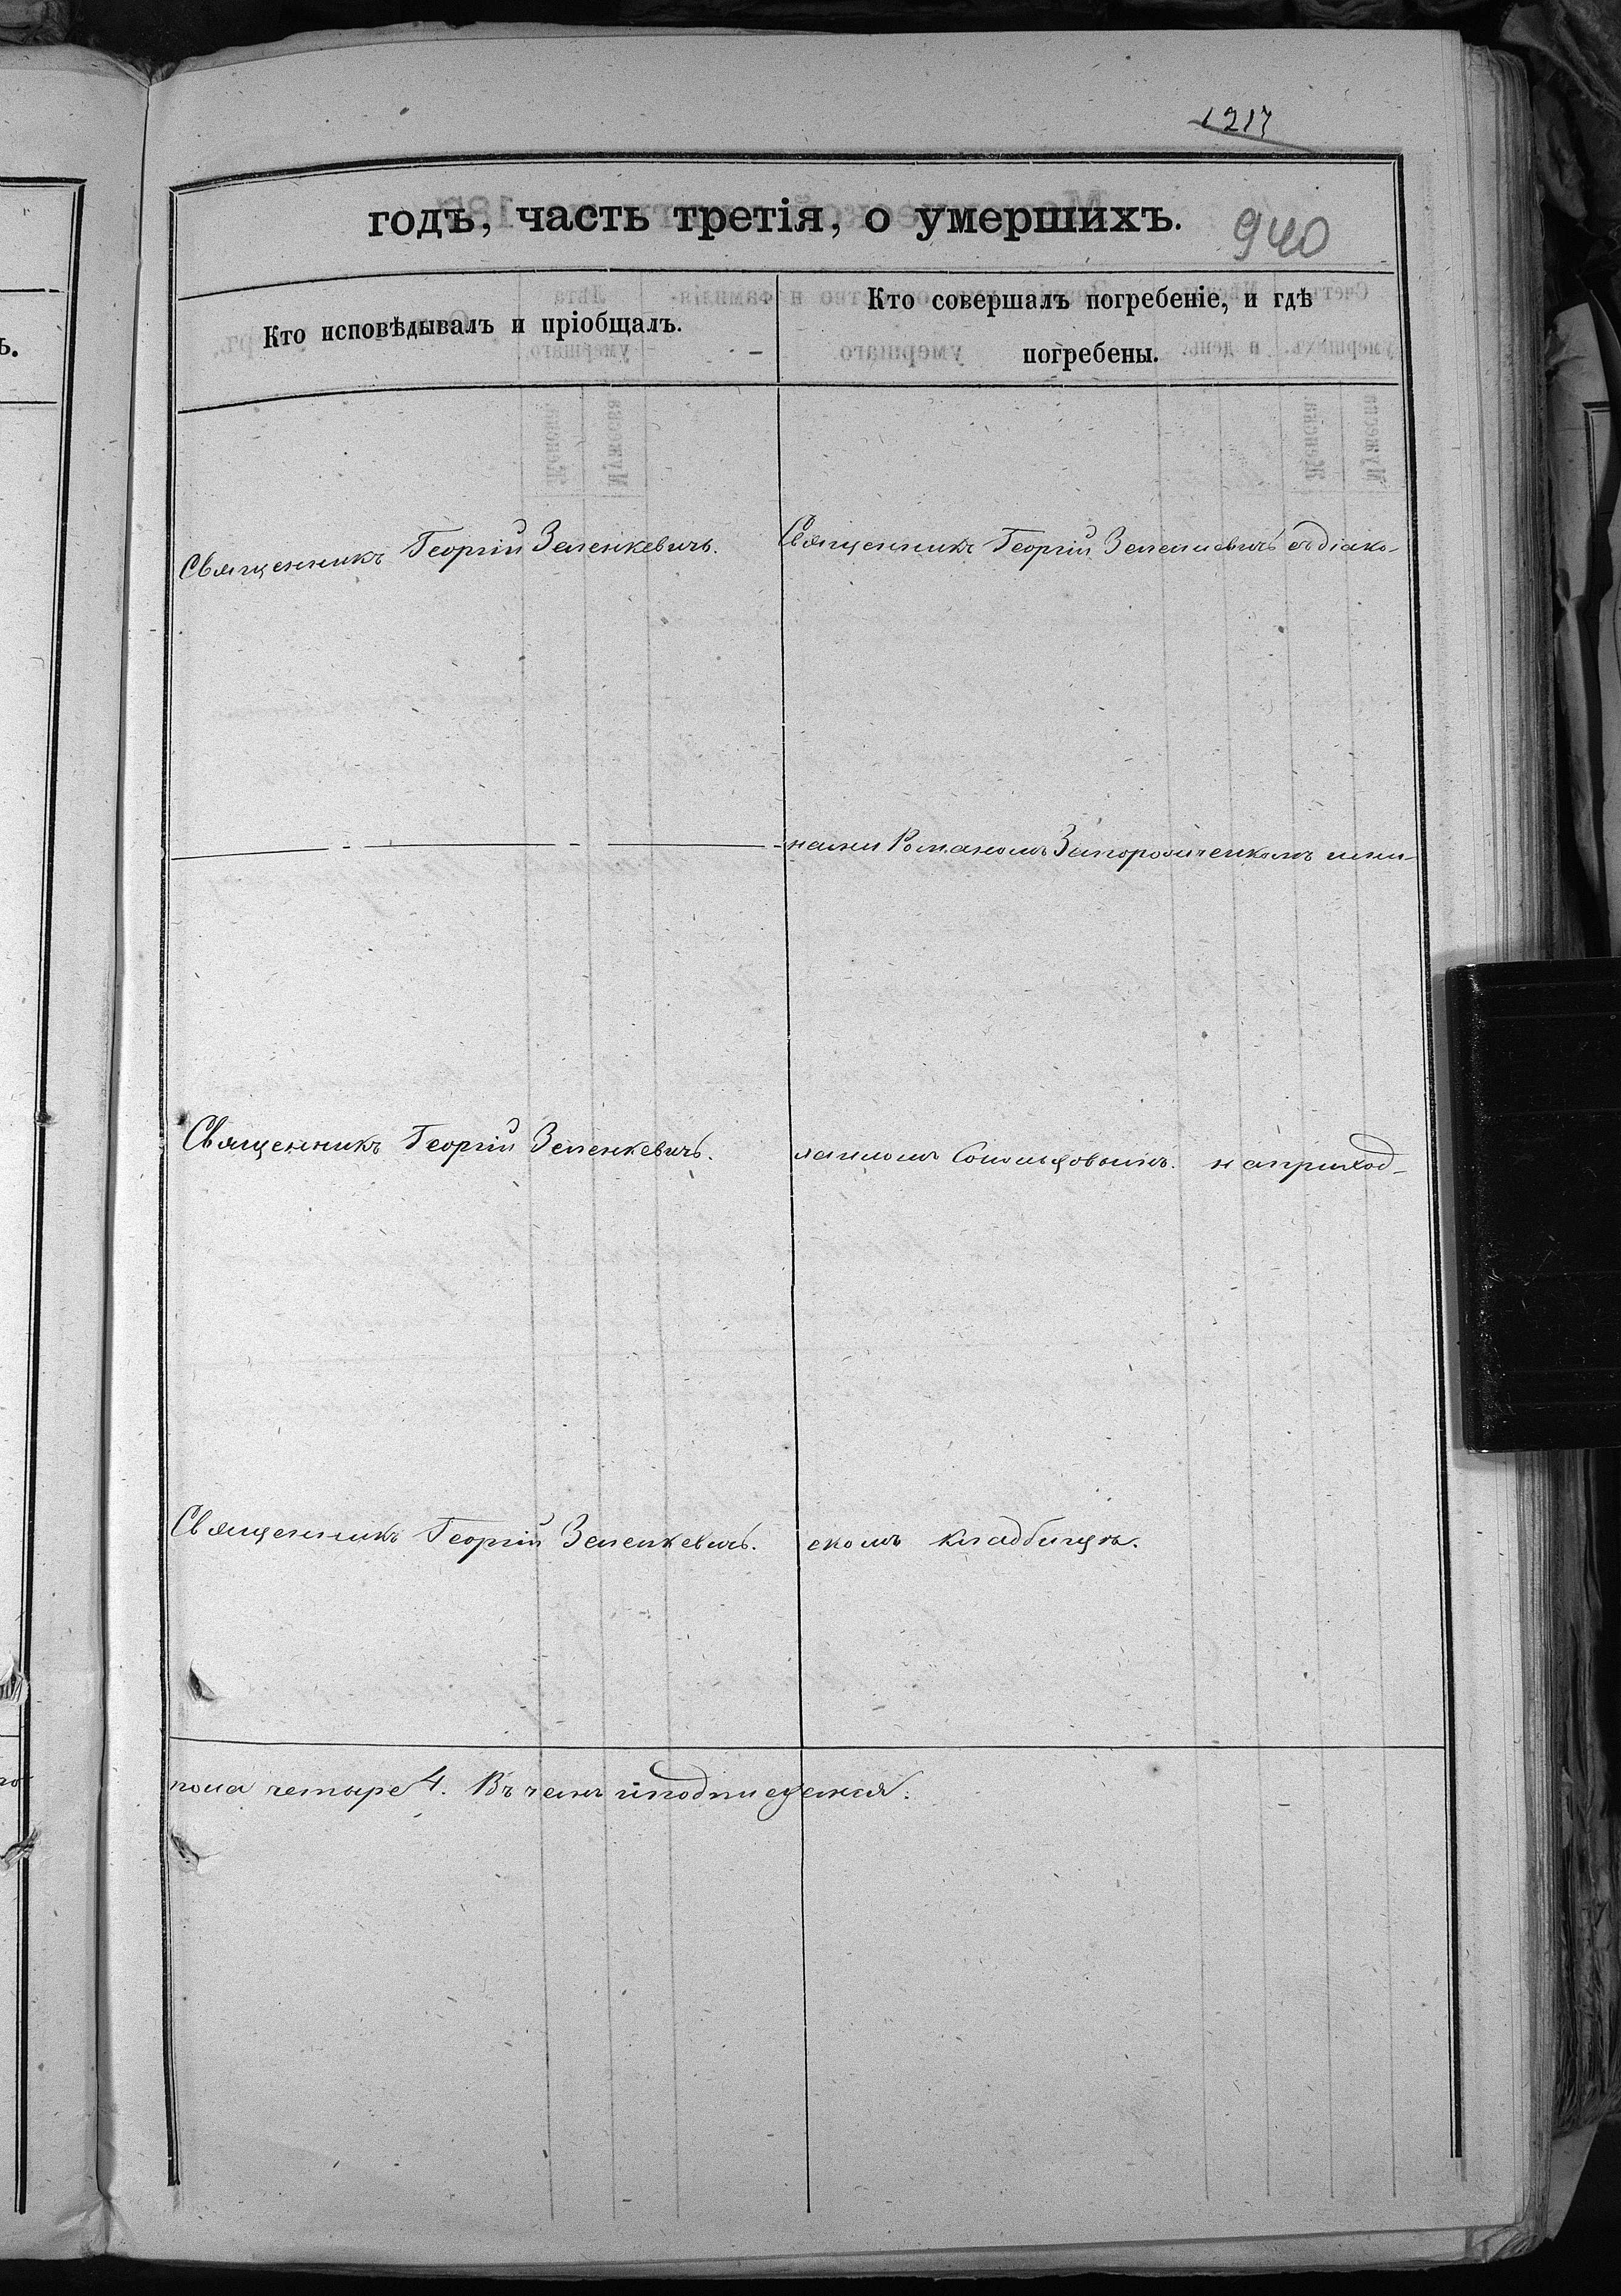 1217
годъ, часть третія, о умершихъ.
940
Кто исповѣдывалъ и пріобщалъ.
Кто совершалъ погребеніе, и гдѣ
погребены.
Священникъ Георгій Зеленкевичъ.
Священникъ Георгій Зеленкевичъ съ діако-
нами Романомъ
Священникъ Георгій Зеленкевичъ.
на приход-
Священникъ Георгій Зеленкевичъ.
скомъ кладбищѣ.
пола четыре 4. Въ чемъ и подписуемся.